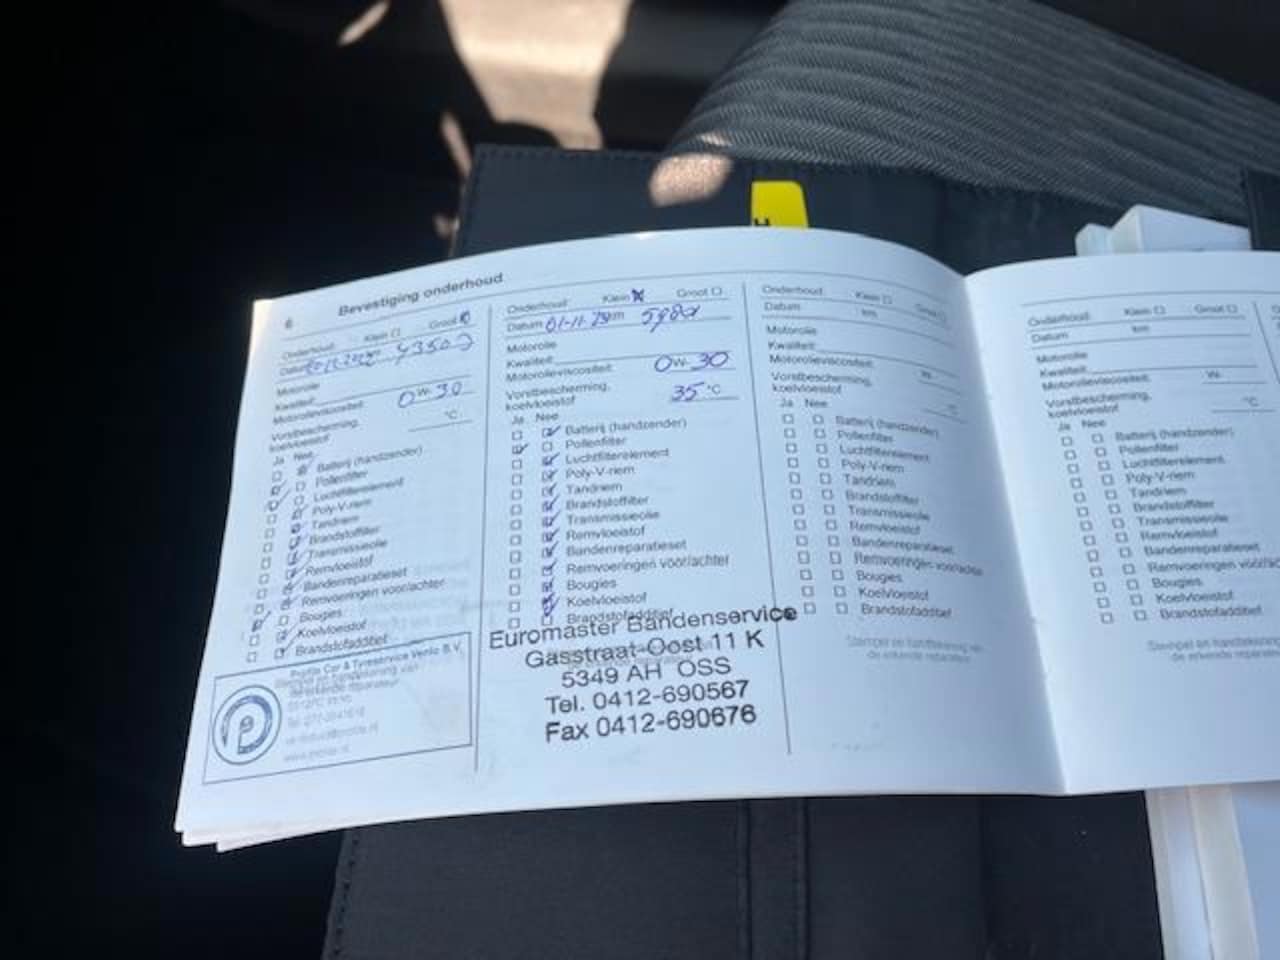 6 Bevestiging onderhoud
Onderhoud: Klein ☐ Groot ☒
Datum 43500
Motorolie
Kwaliteit:
Motorolieviscositeit: 0W-30
Vorstbescherming,
koelvloeistof °C
Ja Nee
Batterij (handzender)
Pollenfilter
Luchtfilterelement
Poly-V-riem
Tandriem
Brandstoffilter
Transmissieolie
Remvloeistof
Bandenreparatieset
Remvoeringen voor/achter
Bougies
Koelvloeistof
Brandstofadditief
Profile Car & Tyreservice Venlo B.V.
Onderhoud: Klein ☒ Groot ☐
Datum 01-11-23 km
Motorolie
Kwaliteit:
Motorolieviscositeit: 0W-30
Vorstbescherming,
koelvloeistof 35 °C
Ja Nee
Batterij (handzender)
Pollenfilter
Luchtfilterelement
Poly-V-riem
Tandriem
Brandstoffilter
Transmissieolie
Remvloeistof
Bandenreparatieset
Remvoeringen voor/achter
Bougies
Koelvloeistof
Brandstofadditief
Euromaster Bandenservice
Gasstraat-Oost 11 K
5349 AH OSS
Tel. 0412-690567
Fax 0412-690676
Onderhoud: Klein ☐ Groot ☐
Datum km
Motorolie
Kwaliteit:
Motorolieviscositeit: W-
Vorstbescherming,
koelvloeistof °C
Ja Nee
Batterij (handzender)
Pollenfilter
Luchtfilterelement
Poly-V-riem
Tandriem
Brandstoffilter
Transmissieolie
Remvloeistof
Bandenreparatieset
Remvoeringen voor/achter
Bougies
Koelvloeistof
Brandstofadditief
Stempel en handtekening van
de erkende reparateur
Onderhoud: Klein ☐ Groot ☐
Datum km
Motorolie
Kwaliteit:
Motorolieviscositeit: W-
Vorstbescherming,
koelvloeistof °C
Ja Nee
Batterij (handzender)
Pollenfilter
Luchtfilterelement
Poly-V-riem
Tandriem
Brandstoffilter
Transmissieolie
Remvloeistof
Bandenreparatieset
Remvoeringen
Bougies
Koelvloeistof
Brandstofadditief
Stempel en handtekening
de erkende reparateur